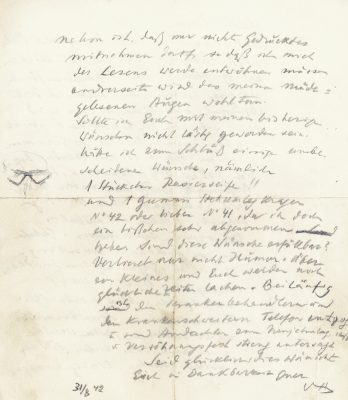 schon ist, daß man nicht Gedrucktes
mitnehmen darf, so daß ich mich
des Lesens werde entwöhnen müssen
andrerseits wird das meinen müde=
gelesenen Augen wohl tun.
Sollte ich Euch mit meinen bisherigen
Wünschen nicht lästig geworden sein,
hätte ich zum Schluß einige unbe-
scheidene Wünsche, nämlich
1 Stückchen Rasierseife!!
und 1 Gummi Kragen
No 42 oder lieber No 41, da ich doch
ein bißchen sehr abgenommen
habe. Sind diese Wünsche erfüllbar?
Verlieret nur nicht Humor. Über
ein Kleines und Euch werden noch
glückliche Zeiten lachen. Beiläufig
den Krankenbehandlern und
den Krankenschwestern Telefon
und
Versöhnungsfest streng untersagt
Seid glücklich dies wünscht
Euch in Dankbarkeit Euer
31/8 42